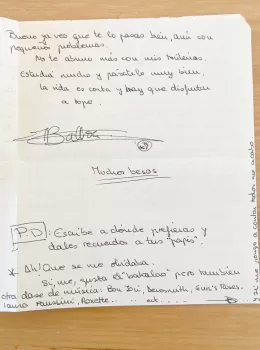 Bueno ya veo que te lo pasas bien, aún con
pequeños problemas.
No te aburro más con mis
Estudia mucho y pásatelo muy bien,
la vida es corta y hay que disfrutar
a tope.
Muchos besos
P.D: Escribe a dónde prefieras y
dales recuerdos a tus "papis".
* Ah! Que se me olvidaba.
Sí, me, gusta el "bakalao" pero también
otra clase de música: Bon Jovi, Aerosmith, Gun's Roses.
Laura Paussini, Roxette... ect...
y si me pongo a contar todos no acabo.